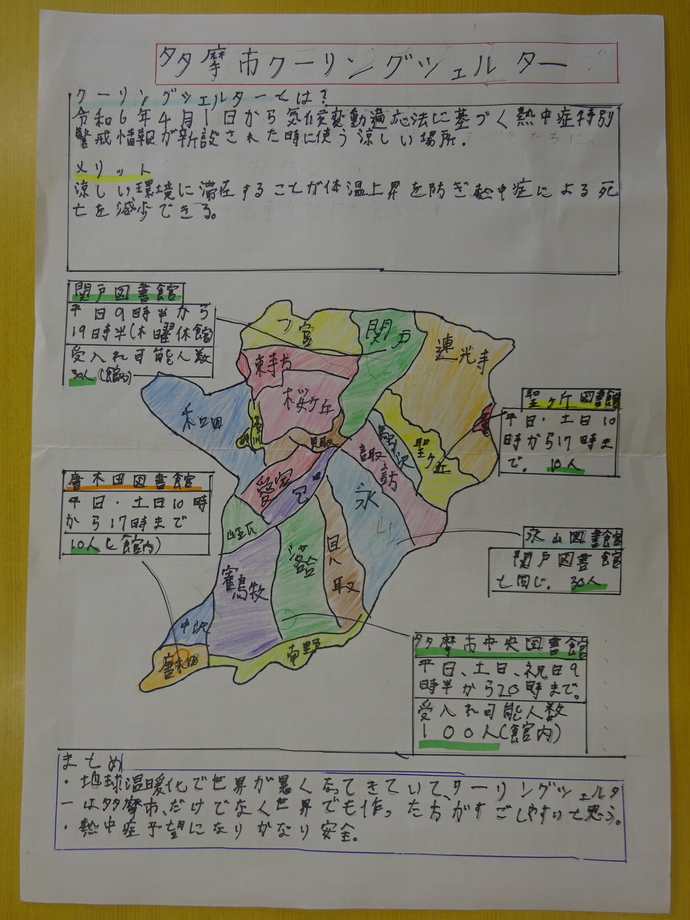 多摩市クーリングシェルター
クーリングシェルターとは?
令和6年4月1日から気候変動適応法に基づく熱中症特別
警戒情報が新設された時に使う涼しい場所.
メリット
涼しい環境に滞在することが体温上昇を防ぎ熱中症による死
亡を減少できる。
関戸図書館
平日9時半から
19時半(木曜休館)
受入れ可能人数
30人(館内)
一宮
関戸
連光寺
東寺方
桜ヶ丘
和田
貝取
諏訪
聖ヶ丘
聖ヶ丘図書館
平日・土日10
時から17時ま
で。10人
唐木田図書館
平日・土日10時
から17時まで
10人(館内)
愛宕
永山
永山図書館
関戸図書館
と同じ。30人
落合
貝取
鶴牧
中沢
唐木田
南野
多摩市中央図書館
平日、土日、祝日9
時半から20時まで。
受入れ可能人数
100人(館内)
まとめ
・地球温暖化で世界が暑くなってきていて、クーリングシェルタ
ーは多摩市、だけでなく世界でも作った方がすごしやすいと思う。
・熱中症予望になりかなり安全.